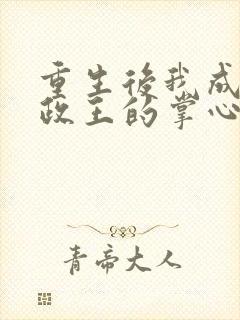 重生後我成
政王的掌心
青帝大人